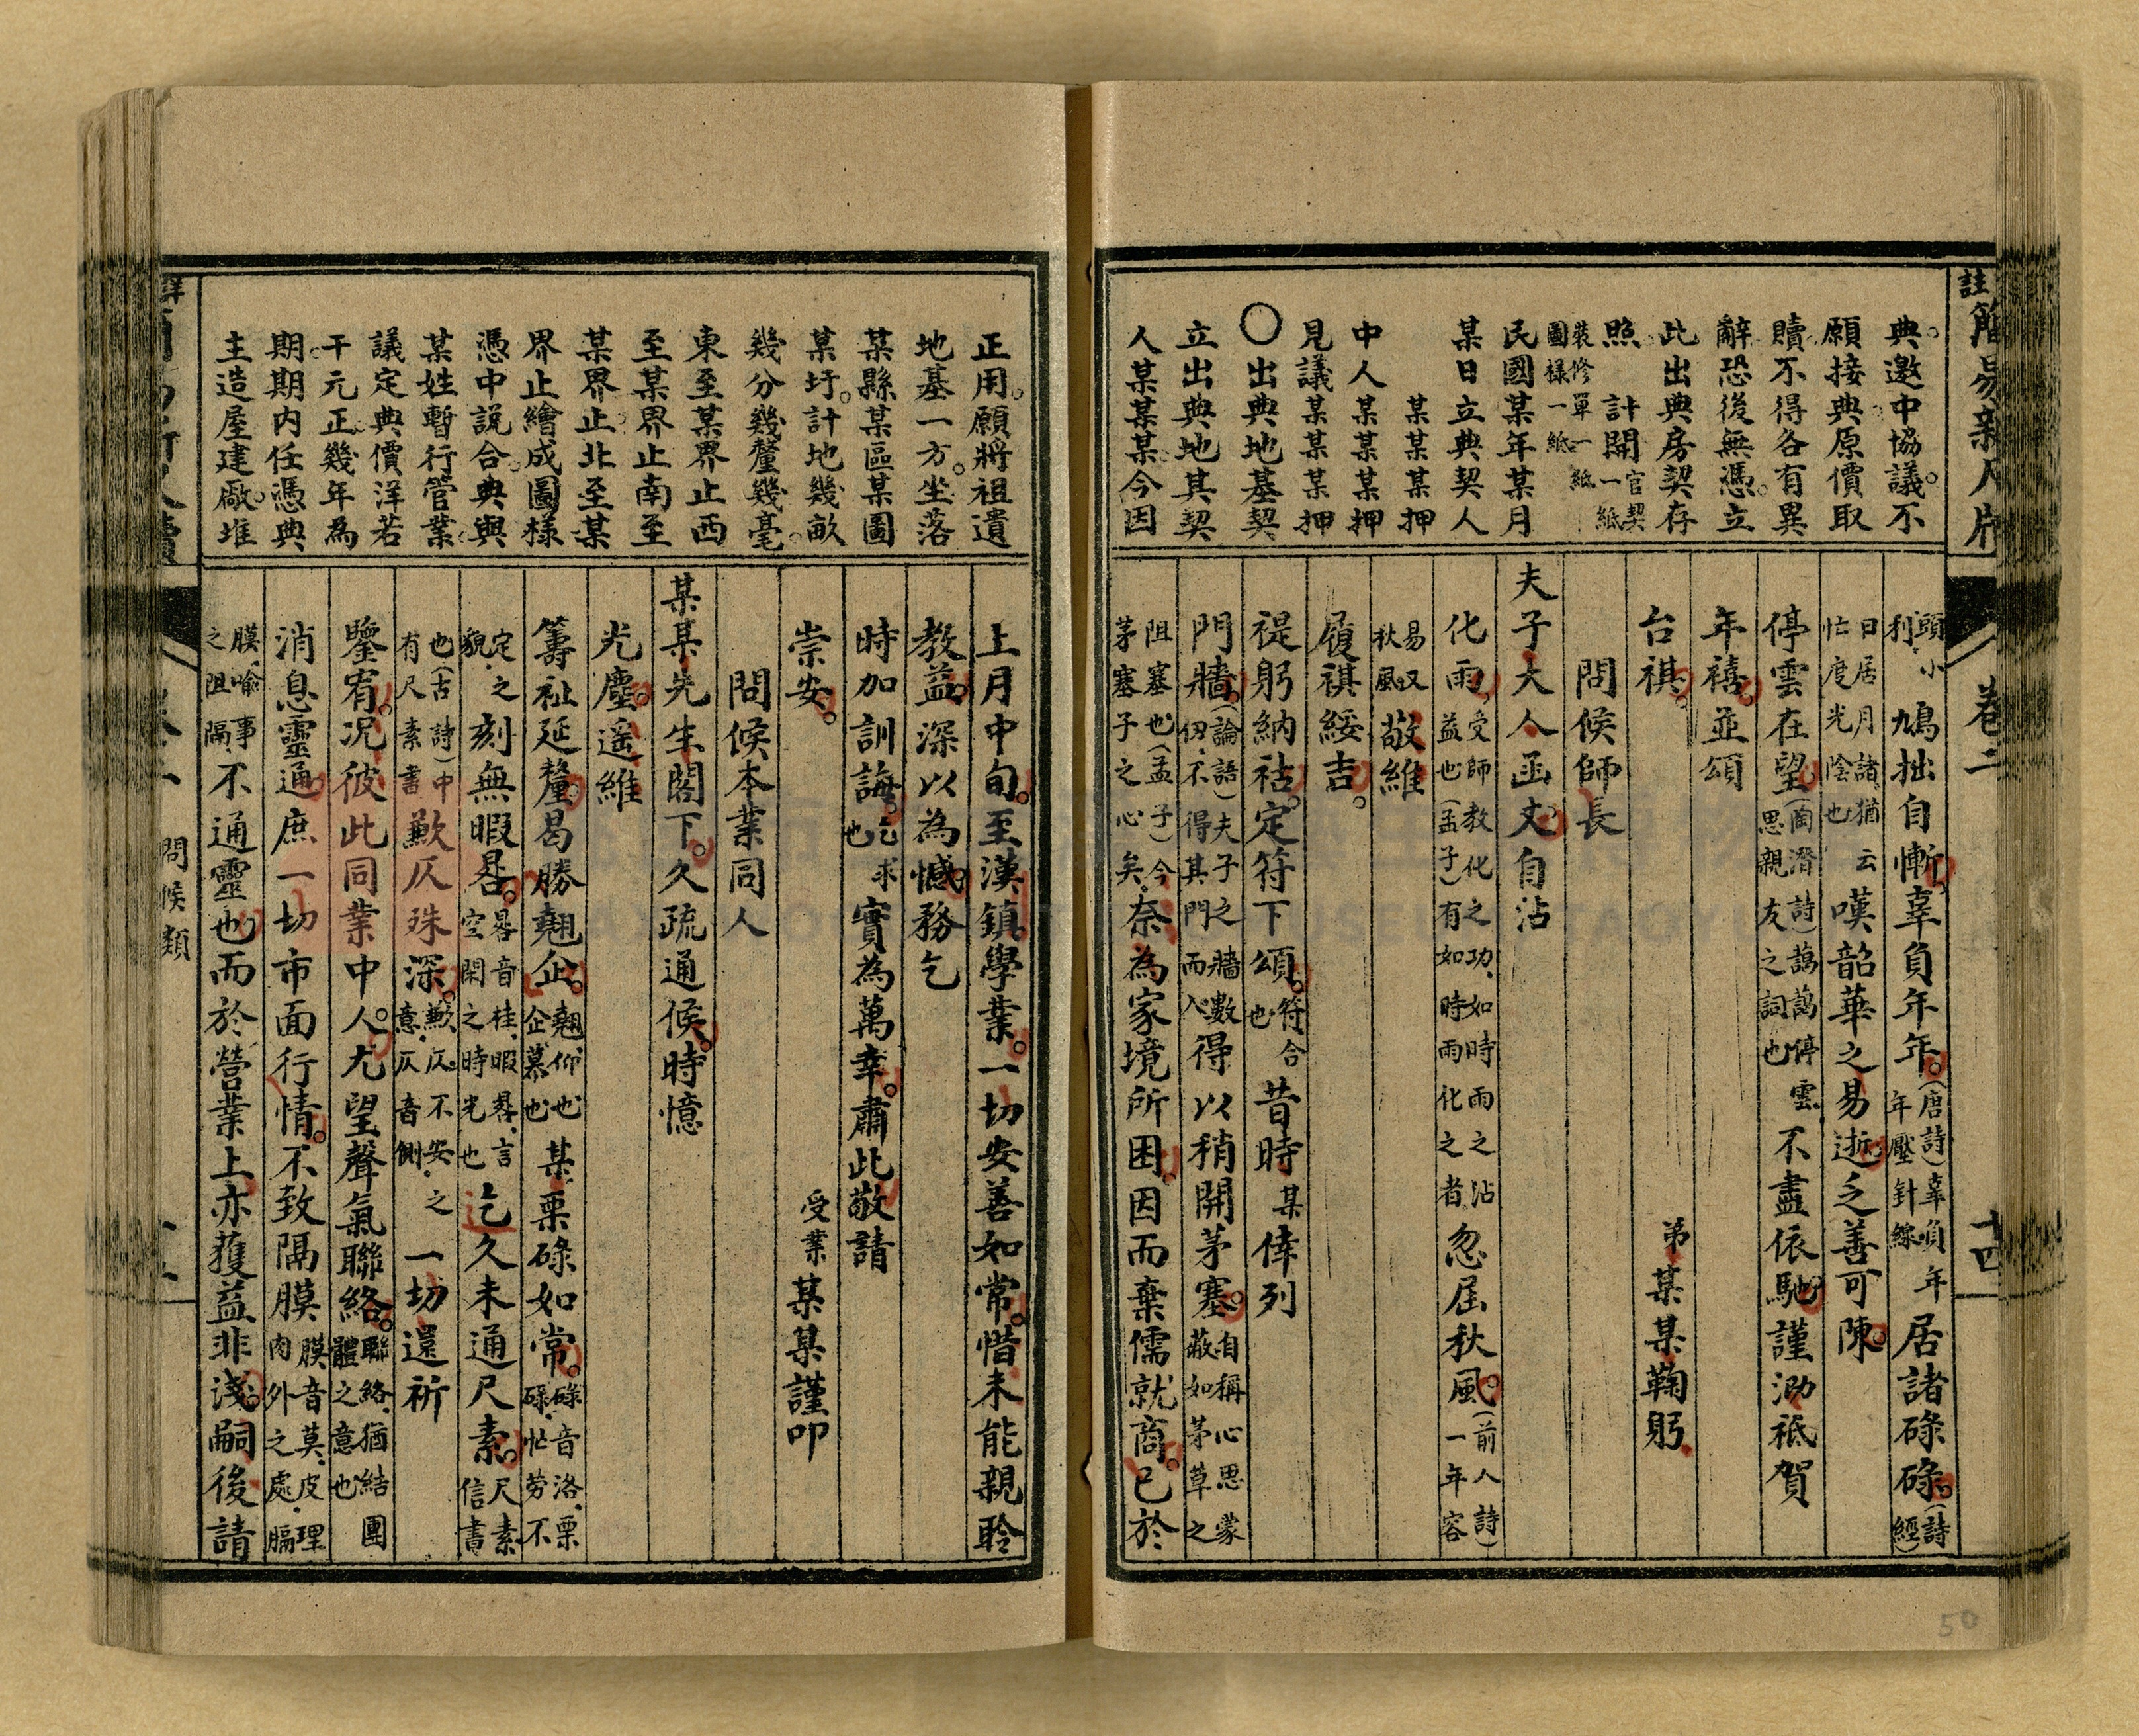 典邀中協議不
願接典原價取
贖不得各有異
辭恐後無憑立
此出典房契存
照　計開官契一紙
裝修單一紙
圖樣一紙
民國某年某月
某日立典契人
某某某押
中人某某某押
見議某某某押
○出典地基契
立出典地其契
人某某某今因
頭小利鳩拙自慚辜負年年(唐詩)辜負年年壓針線居諸碌碌(詩經)
日居月諸猶云忙度光陰也嘆韶華之易逝乏善可陳
停雲在望(陶潛詩)靄靄停雲思親友之詞也不盡依馳謹泐祗賀
年禧並頌
台祺　弟某某鞠躬
問候師長
夫子大人函丈自沾
化雨受師教化之功如時雨之沾益也(孟子)有如時雨化之者忽屆秋風(前人詩)一年容
易又秋風敬維
履祺綏吉
禔躬納祜定符下頌符合也昔時某倖列
門牆(論語)夫子之牆數仞不得其門而入得以稍開茅塞自稱心思蒙蔽如茅草之
阻塞也(孟子)今茅塞子之心矣奈為家境所困因而棄儒就商已於
註簡易新尺牘
卷二
十四
50
正用願將祖遺
地基一方坐落
某縣某區某圖
某圩計地幾畝
幾分幾釐幾毫
東至某界止西
至某界止南至
某界止北至某
界止繪成圖樣
憑中說合典與
某姓暫行管業
議定典價洋若
干元正幾年為
期期內任憑典
主造屋建廠堆
上月中旬至漢鎮學業一切安善如常惜未能親聆
教益深以為憾務乞
時加訓誨乞求也實為萬幸肅此敬請
崇安　受業某某謹叩
問候本業同人
某某先生閣下久疏通候時憶
光塵遥維
籌祉延釐曷勝翹企翹仰也企慕也某栗碌如常碌音洛栗碌忙勞不
定之貌刻無暇晷晷音桂暇晷言空閑之時光也迄久未通尺素尺素信書
也(古詩)中有尺素書歉仄殊深歉仄不安之意仄音側一切還祈
鑒宥況彼此同業中人尤望聲氣聯絡聯絡猶結團體之意也
消息靈通庶一切市面行情不致隔膜膜音莫皮肉外之處理膈
膜喻事之阻隔不通靈也而於營業上亦獲益非淺嗣後請
問候類